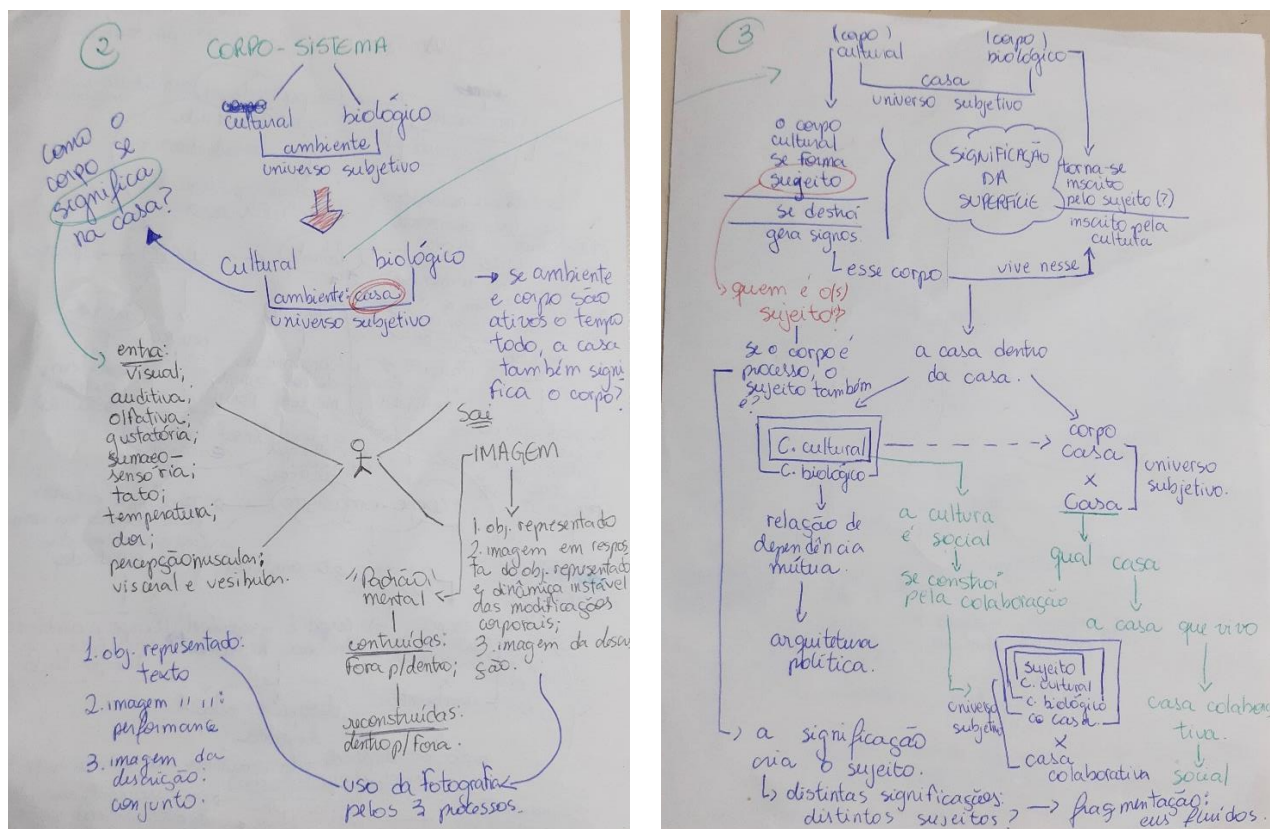 2
CORPO-SISTEMA
cultural
biológico
ambiente
universo subjetivo
como o
corpo se
significa
na casa?
Cultural
biológico
ambiente: casa
universo subjetivo
→ se ambiente
e corpo são
ativos o tempo
todo, a casa
também signi
fica o corpo?
entra:
visual;
auditiva;
olfativa;
gustatória;
sumaeo-
sensória;
tato;
temperatura;
dor;
percepção muscular;
visceral e vesibular.
Sai
IMAGEM
1. obj. representado
2. imagem em respos
ta do obj. representado
e dinâmica instável
das modificações
corporais;
3. imagem da descri
ção.
"Padrão"
mental
contruídas:
fora p/dentro;
reconstruídas:
dentro p/ fora.
1. obj. representado:
texto
2. imagem " ":
performance
3. imagem da
descrição:
conjunto.
uso da fotografia
pelos 3 processos.
3
(corpo)
cultural
(corpo)
biológico
casa
universo subjetivo
o corpo
cultural
se forma
sugeito
se destrói
gera signos.
SIGNIFICAÇÃO
DA
SUPERFÍCIE
torna-se
inscrito
pelo sujeito (?)
inscrito pela
cultura
esse corpo
vive nesse
quem é o(s)
sujeito?
se o corpo é
processo, o
sujeito também
é?
a casa dentro
da casa.
C. cultural
C. biológico
corpo
casa
x
Casa
universo
subjetivo.
relação de
dependência
mútua.
arquitetura
política.
a cultura
é social
se constrói
pela colaboração
qual casa
a casa que vivo
casa colabora
tiva.
social
universo
subjetivo
sujeito
C. cultural
c. biológico
co casa
x
casa
colaborativa
a significação
cria o sujeito.
distintas significações:
distintos sujeitos? → fragmentação:
eus fluídos.